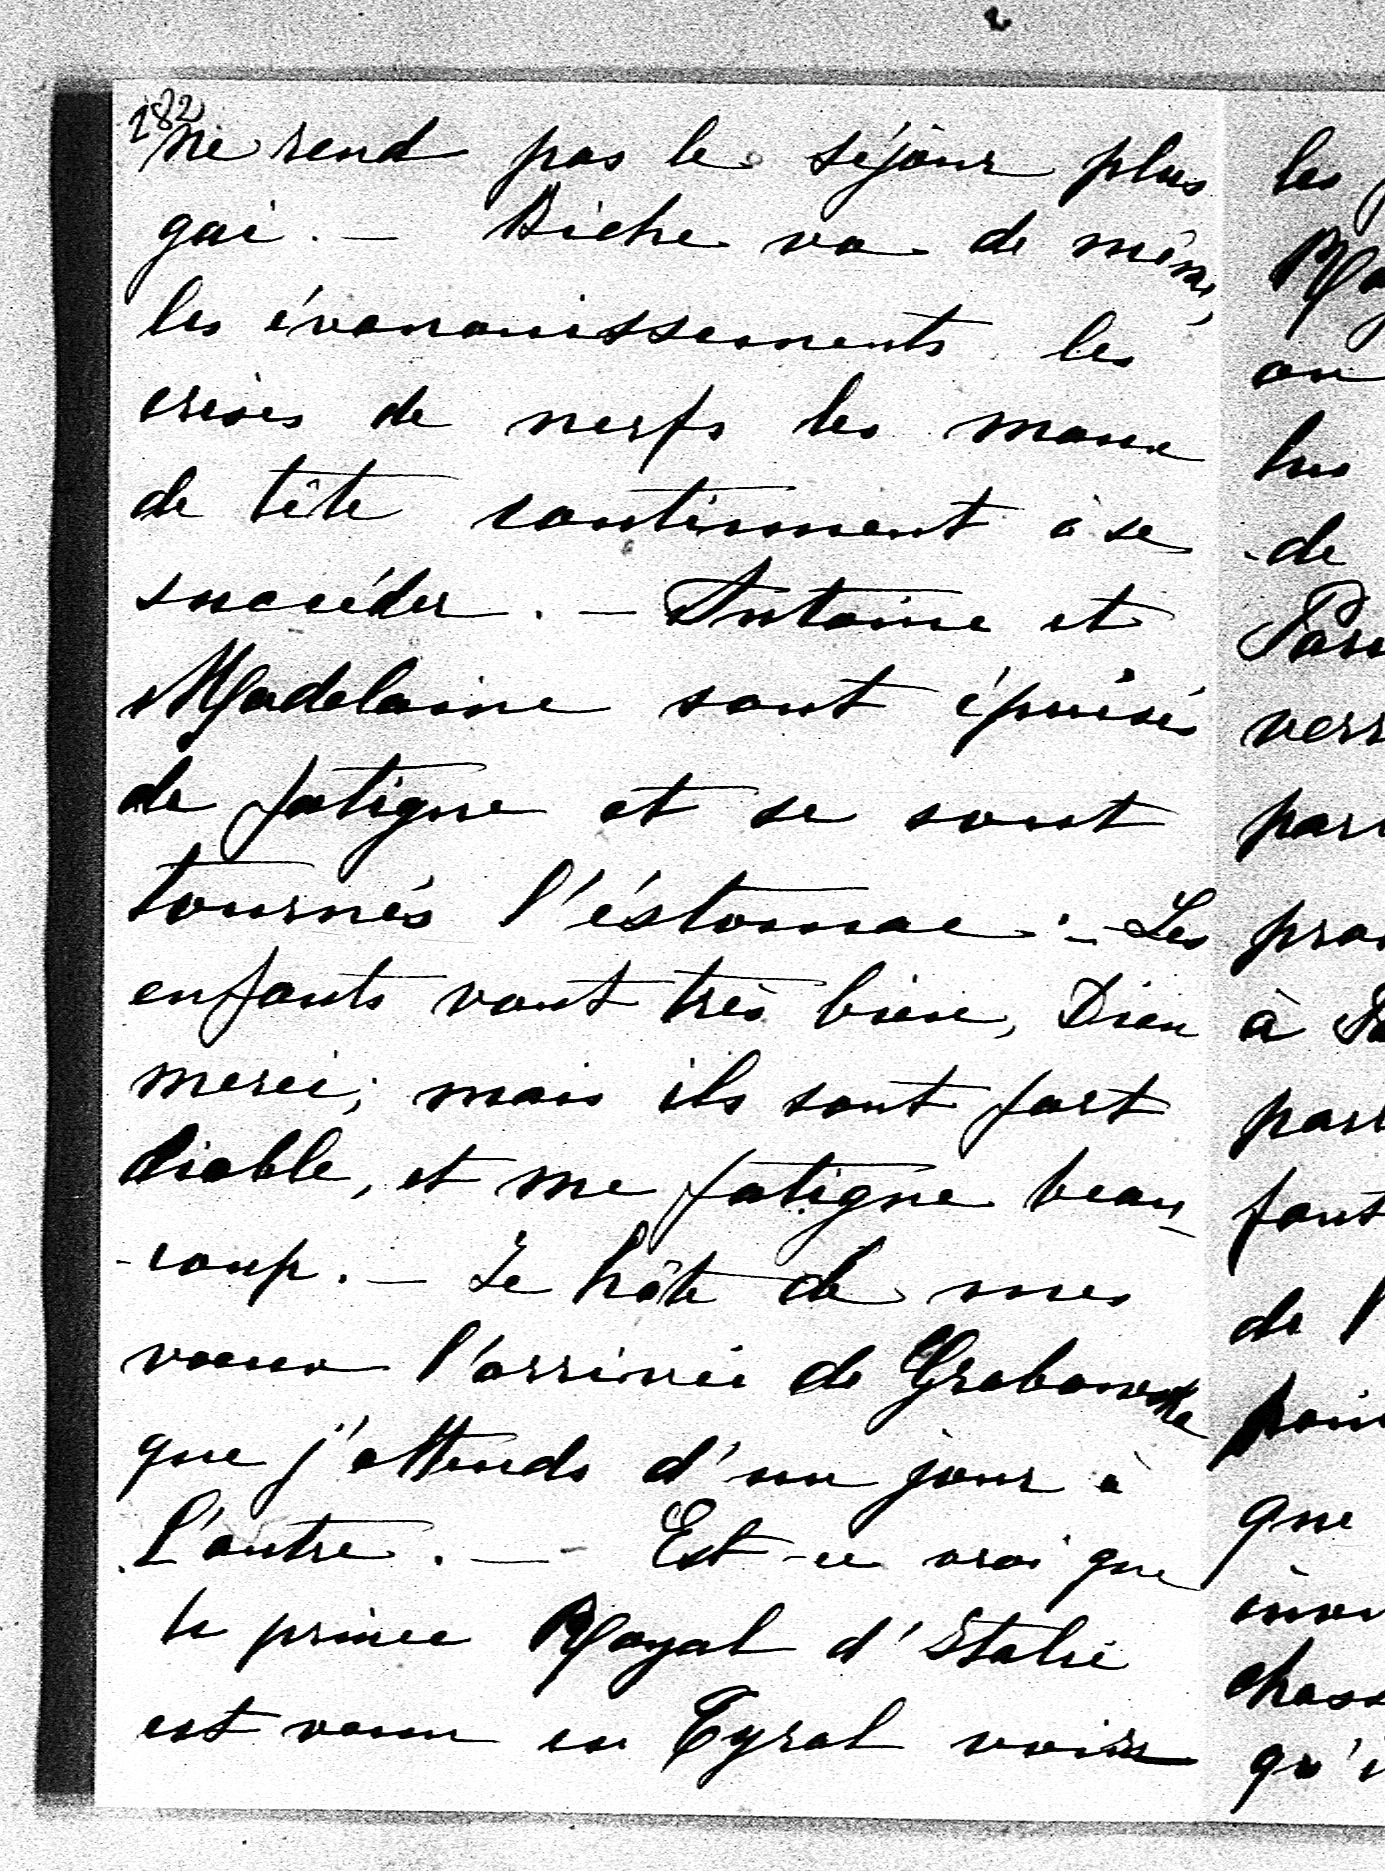 182
ne rend pas le séjour plus
gai. — Biche va de même,
les évanouissements les
crises de nerfs les maux
de tête continuent à se
succéder. — Antoine et
Madelaine sont épuisés
de fatigue et se sont
tournés l'éstomac. — Les
enfants vont très bien, Dieu
merci; mais ils sont fort
diable, et me fatigne beau-
-coup. — Je hâte de mes
voeux l'arrivée de Grabowska
que j'attends d'un jour à
L'autre. — Est-ce vrai que
le prince Royal d'Italie
est venu en Tyrol voir
les
on
lus
de
verr
par
à
part
font
de l'
que
chass
qu'i